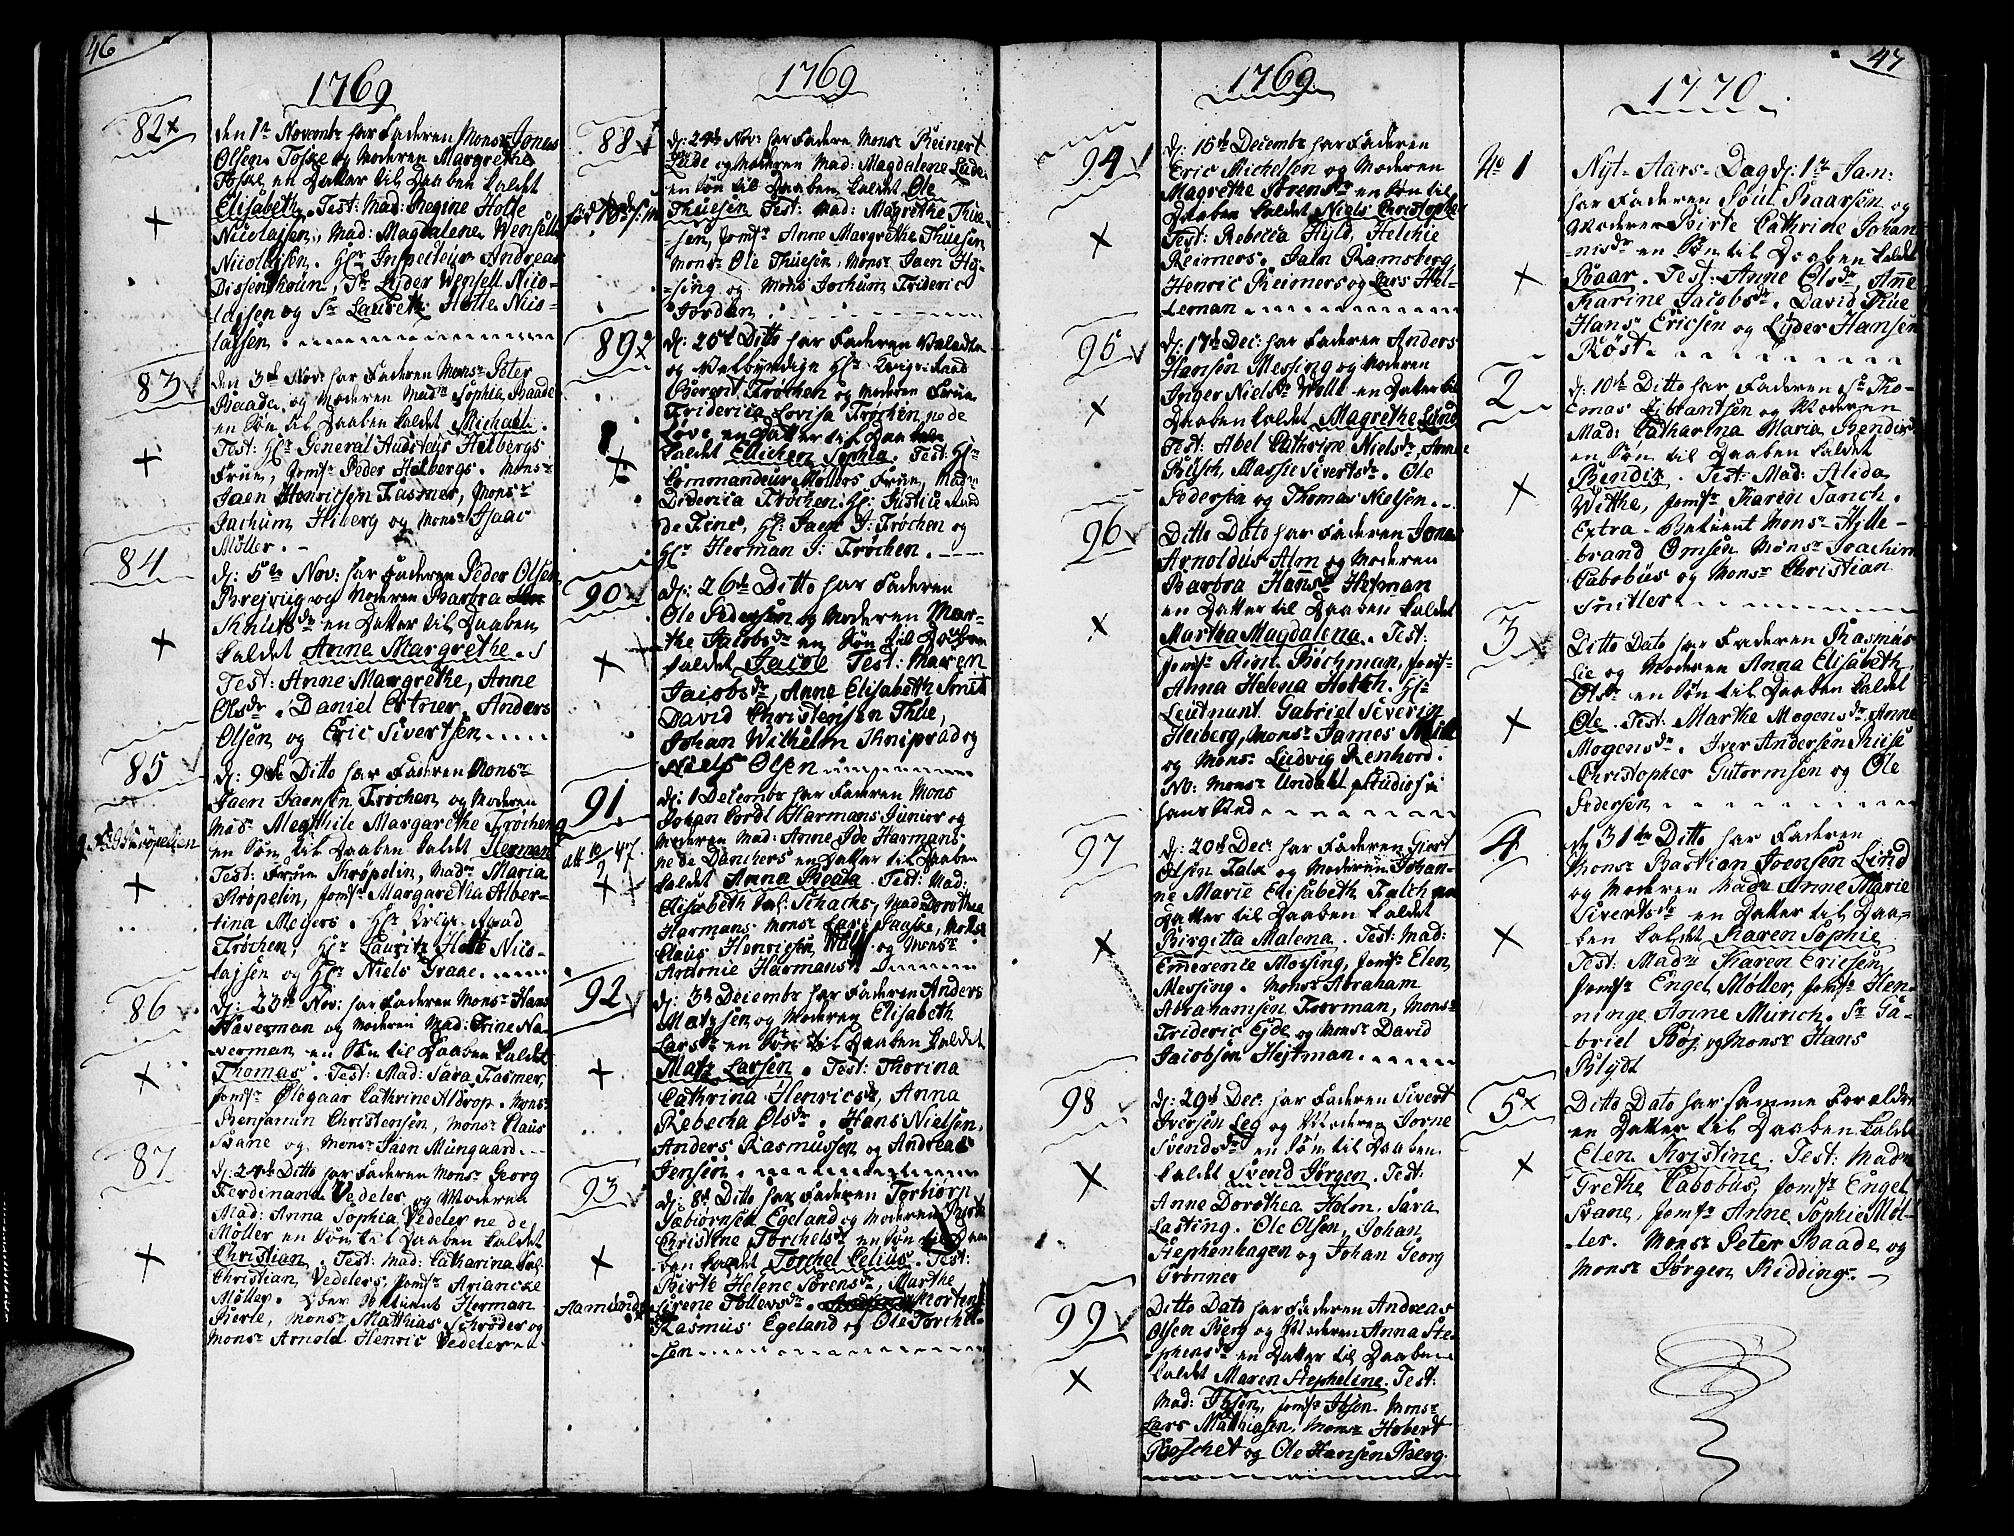 46
1769
82
den 1te Novembr har Faderen Monsr Jonas
Olsen Foske og Moderen Margrethe
Foske en Datter til Daaben kaldet
Elisabeth. Test: Mad: Regine Holte
Nicolajsen, Mad: Magdalene Wensell
Nicolajsen. Hr Inspecteur Andreas
Dissenthoun, Sr Lyder Wensell Nico-
lajsen og Sr Lauretz Holte Nico-
lajsen.
83
den 3de Nov: har Faderen Monsr Peter
Baade, og Moderen Madm Sophia Baade
en Søn til Daaben kaldet Michael.
Test: Hr General Auditeus Heibergs
Frue, Jomfr Peder Heibergs. Monsr
Jaen Henricsen Fasmer, Monsr
Jachum Hiberg og Monsr Isaac
Møller.
84
dj: 5te Nov: har Faderen Peder Olsen
Brejvug og Moderen Barbra
Knutsdr en Datter til Daaben
kaldet Anne Margrethe.
Test: Anne Margrethe, Anne
Olsdr. Daniel Ertner, Anders
Olsen og Eric Sivertsen
85
dj: 9de Ditto har Faderen Monsr
Jaen Jaensen Frøchen og Moderen
Mad: Mechtile Margarethe Frøchen
en Søn til Daaben kaldet Herman
Test: Frue Krøpelin, Madm Maria
Krøpelin, Jomfr Margaretha Alber-
tina Meyers. Hr Krigs-Raad
Frøchen, Hr Lauritz Holte Nico-
lajsen og Hr Niels Graae.
86
dj: 23de Nov: har Faderen Monsr Hans
Haverman og Moderen Mad: Trine Ha-
verman en Søn til Daaben kaldet
Thomas. Test: Mad: Sara Fasmer,
Jomfr Olegaar Cathrine Aldrop. Monsr
Benjamin Christensen, Monsr Claus
Svane og Monsr Jaen Mungaard.
87
dj: 24de Ditto har Faderen Monsr Georg
Ferdinand Vedeler og Moderen
Mad: Anna Sophia Vedeler ne de
Møller en Søn til Daaben kaldet
Christian. Test: Mad: Catharina sal.
Christian Vedelers, Jomfr Ariancke
Møller. Over Betient Herman
Perle, Monsr Matthias Schröder og
Monsr Arnold Henric Vedeler
1769
88
dj: 24de Nov: har Faderen Monsr Reinert
Lude og Moderen Mad: Magdalene Lude
en Søn til Daaben kaldet Ole
Thuesen Test: Mad: Magrethe Thue-
sen, Jomfr Anne Margrethe Thuesen
Monsr Ole Thuesen, Monsr Jaen Hy-
sing og Monsr Jochum Frideric
Jordan
89
dj: 25de Ditto har Faderen Veledle
og Velbyrdige Hr Krigs-Raad
Berent Frøchen og Moderen Frue
Friderica Lovisa Frøchen ne de
Løve en Datter til Daaben
kaldet Ellichen Sophia. Test: Hr
Commandeur Møllers Frue, Madm
Diderica Frøchen. Hr Justice Raad
de Fine, Hr Jaen J: Frøchen og
Hr Herman J: Frøchen.
90
dj: 26de Ditto har Faderen
Ole Pedersen og Moderen Mar-
the Jacobsdr en Søn til Daaben
kaldet Jacob Test: Maren
Jacobsdr, Anne Elisabeth Smit
David Christensen Thue,
Johan Wilhelm Kniprad og
Niels Olsen
91
dj: 1 Decembr har Faderen Mons
Johan Cordt Harmans Junior og
Moderen Mad: Anne Ide Harmans
ne de Danchers en Datter til Daaben
kaldet Anna Beata. Test: Mad:
Elisabeth sal: Schacks, Mad: Dorothea
Harmans Monsr Lars Paaske, Monsr
Claus Henricsen Wulff og Monsr
Antonie Harmans.
92
dj: 3de Decembr har Faderen Anders
Matzsen og Moderen Elisabeth
Larsdr en Søn til Daaben kaldet
Matz Larsen. Test: Thorina
Cathrina Henricsdr, Anna
Rebecka Olsdr. Hans Nielsen,
Anders Rasmussen og Andreas
Jensen.
93
dj: 8de Ditto har Faderen Torbiørn
Jæbiørnsen Egeland og Moderen Berthe
Christine Torchelsdr en Søn til Daa-
ben kaldet Torchel Celius. Test:
Birte Helene Sørensdr, Marthe
Sirene Tollefsdr. Morten
Aamunds
Rasmus Egeland og Ole Torchel-
sen
1769
94
dj: 15de Decembr har Faderen
Eric Michelsen og Moderen
Magrethe Sørensdr en Søn til
Daaben kaldet Niels Christopher
Test: Rebecca Hyld, Helchie
Reimers. Jaln Ramsberg
Henric Reimers og Lars Hel-
leman
95
dj: 17de Dec: har Faderen Anders
Hansen Messing og Moderen
Inger Nielsdr Wold en Datter til
Daaben kaldet Magrethe Lund
Test: Abel Cathrine Nielsdr, Anne
Busch, Massie Sivertsdr. Ole
Pedersen og Thomas Nielsen.
96
Ditto Dato har Faderen Jonas
Arnoldus Alm og Moderen
Barbra Hansdr Hejman
en Datter til Daaben kaldet
Martha Magdalena. Test:
Jomfr Aim. Bøchman, Jomfr
Anna Helena Holch. Hr
Leutnant Gabriel Severin
Heiberg, Monsr James Mill
og Monsr Ludvig Renhord.
No: Monsr Undall Studiosi
hans Sted
97
dj: 20de Dec: har Faderen Giert
Olsen Falk og Moderen Johan-
ne Marie Elisabeth Falch en
Datter til Daaben kaldet
Birgitta Malena. Test: Mad:
Emerente Mossing, Jomfr Elen
Messing. Monsr Abraham
Abrahamsen Foorman, Monsr
Frideric Ejde og Monsr David
Jacobsen Hejtman.
98
dj: 29de Dec: har Faderen Sivert
Iversen Leg og Moderen Jorne
Svendsdr en Søn til Daaben
kaldet Svend Jørgen. Test:
Anne Dorothea Holm, Sara
Lasting. Ole Olsen, Johan
Stephenhagen og Johan Georg
Grønner
99
Ditto Dato har Faderen Andreas
Olsen Berg og Moderen Anna Ste-
phensdr en Datter til Daaben
kaldet Maren Stepheline. Test:
Mad: Ibsen, Jomfr Ibsen. Monsr
Lars Mathiasen, Monsr Hobert
Boschet og Ole Hansen Berg.
47
1770
No 1
Nyt-Aars-Dag dj: 1te Jan:
har Faderen Poul Baarsen og
Moderen Birte Cathrine Johan-
nisdr en Søn til Daaben kaldet
Baar. Test: Anne Olsdr, Anne
Karine Jacobsdr. David Thue
Hans Ericsen og Lyder Hansen
Røst.
2
dj: 10de Ditto har Faderen Sr Tho-
mas Eibrantsen og Moderen
Mad: Catharina Maria Bendix
en Søn til Daaben kaldet
Bendix. Test: Mad: Alida
Withe, Jomfr Karen Janch.
Extra-Betient Monsr Hylle-
brand Omsen, Monsr Joachim
Cabobus og Monsr Christian
Snitler
3
Ditto Dato har Faderen Rasmus
Lie og Moderen Anna Elisabeth
Olsdr en Søn til Daaben kaldet
Ole. Test: Marthe Mogensdr, Anne
Mogensdr. Iver Andersen Riise
Christopher Gutormsen og Ole
Pedersen
4
dj 31te Ditto har Faderen
Monsr Bastian Svensen Lind
og Moderen Madm Anne Marie
Sivertsdr en Datter til Daa-
ben kaldet Karen Sophie
Test: Madm Karen Ericsen,
Jomfr Engel Møller, Jomfr Hen-
ninge Anne Munch. Sr Ga-
briel Bøj og Monsr Hans
Blydt
5
Ditto Dato har samme Forældre
en Datter til Daaben kaldet
Elen Kristine. Test: Madm
Grethe Cabobus, Jomfr Engel
Svane, Jomfr Anne Sophie Møl-
ler. Monsr Peter Baade og
Monsr Jørgen Ridding.